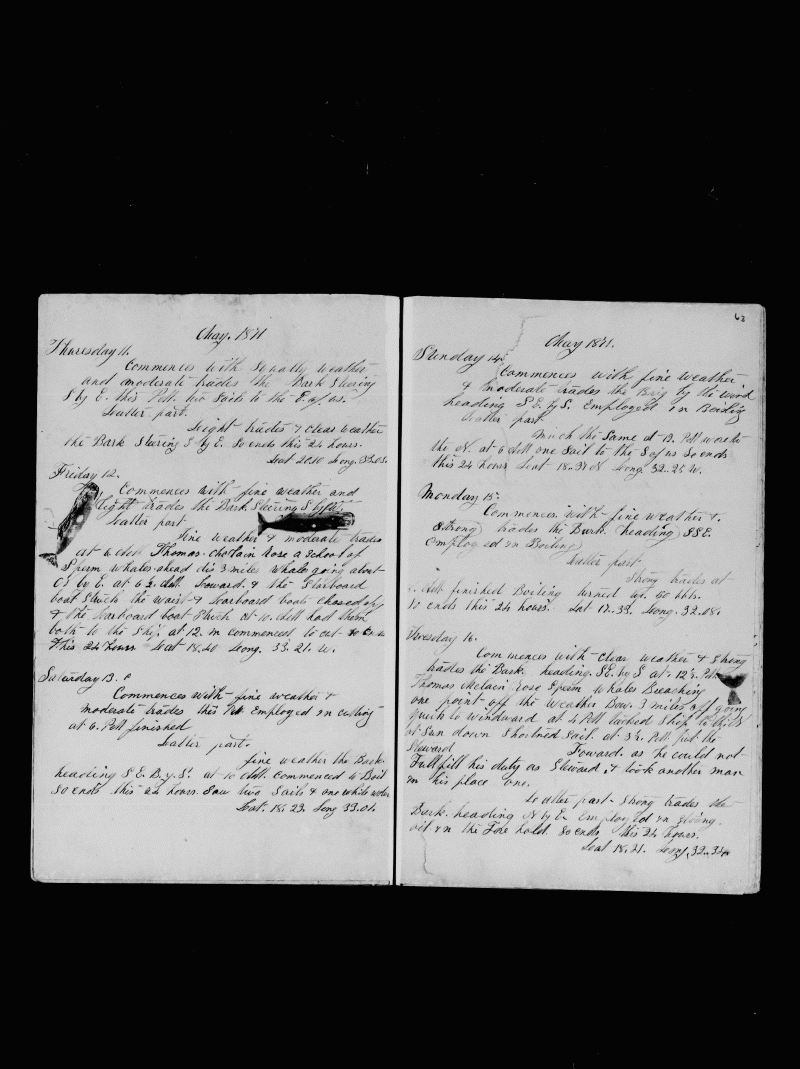 May. 1871
Thuresday 11.
Commences with Squally weather
and moderate trades the Bark Steering
S by E. this P.M. two Sails to the E. of us.
Latter part.
Leight trades & clear weather
the Bark Steering S by E. So ends this 24 hours.
Leat 20.10 Long. 33.05.
Friday 12.
Commences with fine weather and
light trades the Bark Steering S by E.
Latter part
Fine weather & moderate trades
at 6 AM Thomas Mclain rose a School of
Sperm whales ahead dis 3 miles whales going about
by E. at 6 ½ AM. Loward. & the Starboard
boat Struck the waist & Larboard boats chased
& the Larboard boat Struck at 10. AM had them
both to the Ship at 12. m commenced to cut So ends
this 24 hours Leat 18.40 Long. 33.21. W.
Saturday 13.
Commences with fine weather &
moderate trades this PM Employed in cutting
at 6. PM finished
Latter part.
fine weather the Bark
heading S E. B. y. S. at 10 AM. Commenced to Boil
So ends this 24 hours. Saw two Sails & one white water
Leat. 18.23. Long 33.01.
62
May 1871.
Sunday 14.
Commences with fine weather
& moderate trades the Brig by the wind
heading S E. by S. Employed in Boiling
Latter part
much the Same at 12. PM wore to
the N. at 6 AM one Sail to the S of us So ends
this 24 hours Leat 18.37 N Long. 32.25 W.
Monday 15.
Commences with fine weather &
Strong trades the Bark heading SSE.
employed in Boiling
Latter part
Strong trades at
AM finished Boiling turned up. 60 bbls.
So ends this 24 hours. Lat 17.33. Long. 32.08.
Tuesday 16.
Commences with clear weather & Strong
trades the Bark heading SE. by S at 12½ PM
Thomas Mclain rose Sperm whales Breaching
one point off the weather Bow. 3 miles off going
quick to windward at 4 PM tacked Ship to the
at Sun down Shortned Sail. at 3½ PM put the
Steward Foward. as he could not
Fullfill his duty as Steward. & took another man
in his place one.
Leatter part Strong trades the
Bark heading N by E. Employed in Stowing.
oil in the Fore hold. So ends this 24 hours.
Leat 18.21. Long. 32.32